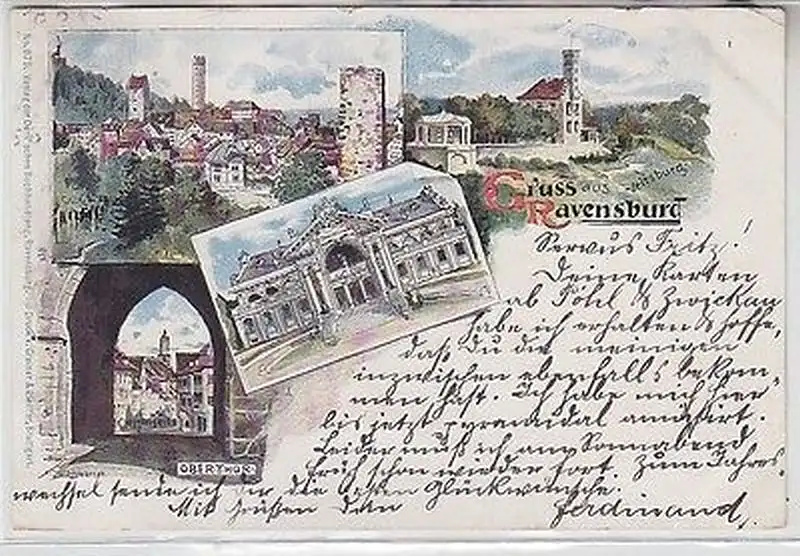 Gruss aus
Veitsburg.
Ravensburg
OBERTHOR.
Servus Fritz!
Deine Karten
ab Pöhl & Zwickau
habe ich erhalten & hoffe,
daß Du die meinigen
inzwischen ebenfalls bekom-
men hast. Ich habe mich hier
bis jetzt pyramidal amüsirt.
Leider muß ich am Sonnabend
früh schon wieder fort. Zum Jahres-
wechsel sende ich die Glückwünsche.
Mit Grüßen Dein Ferdinand.